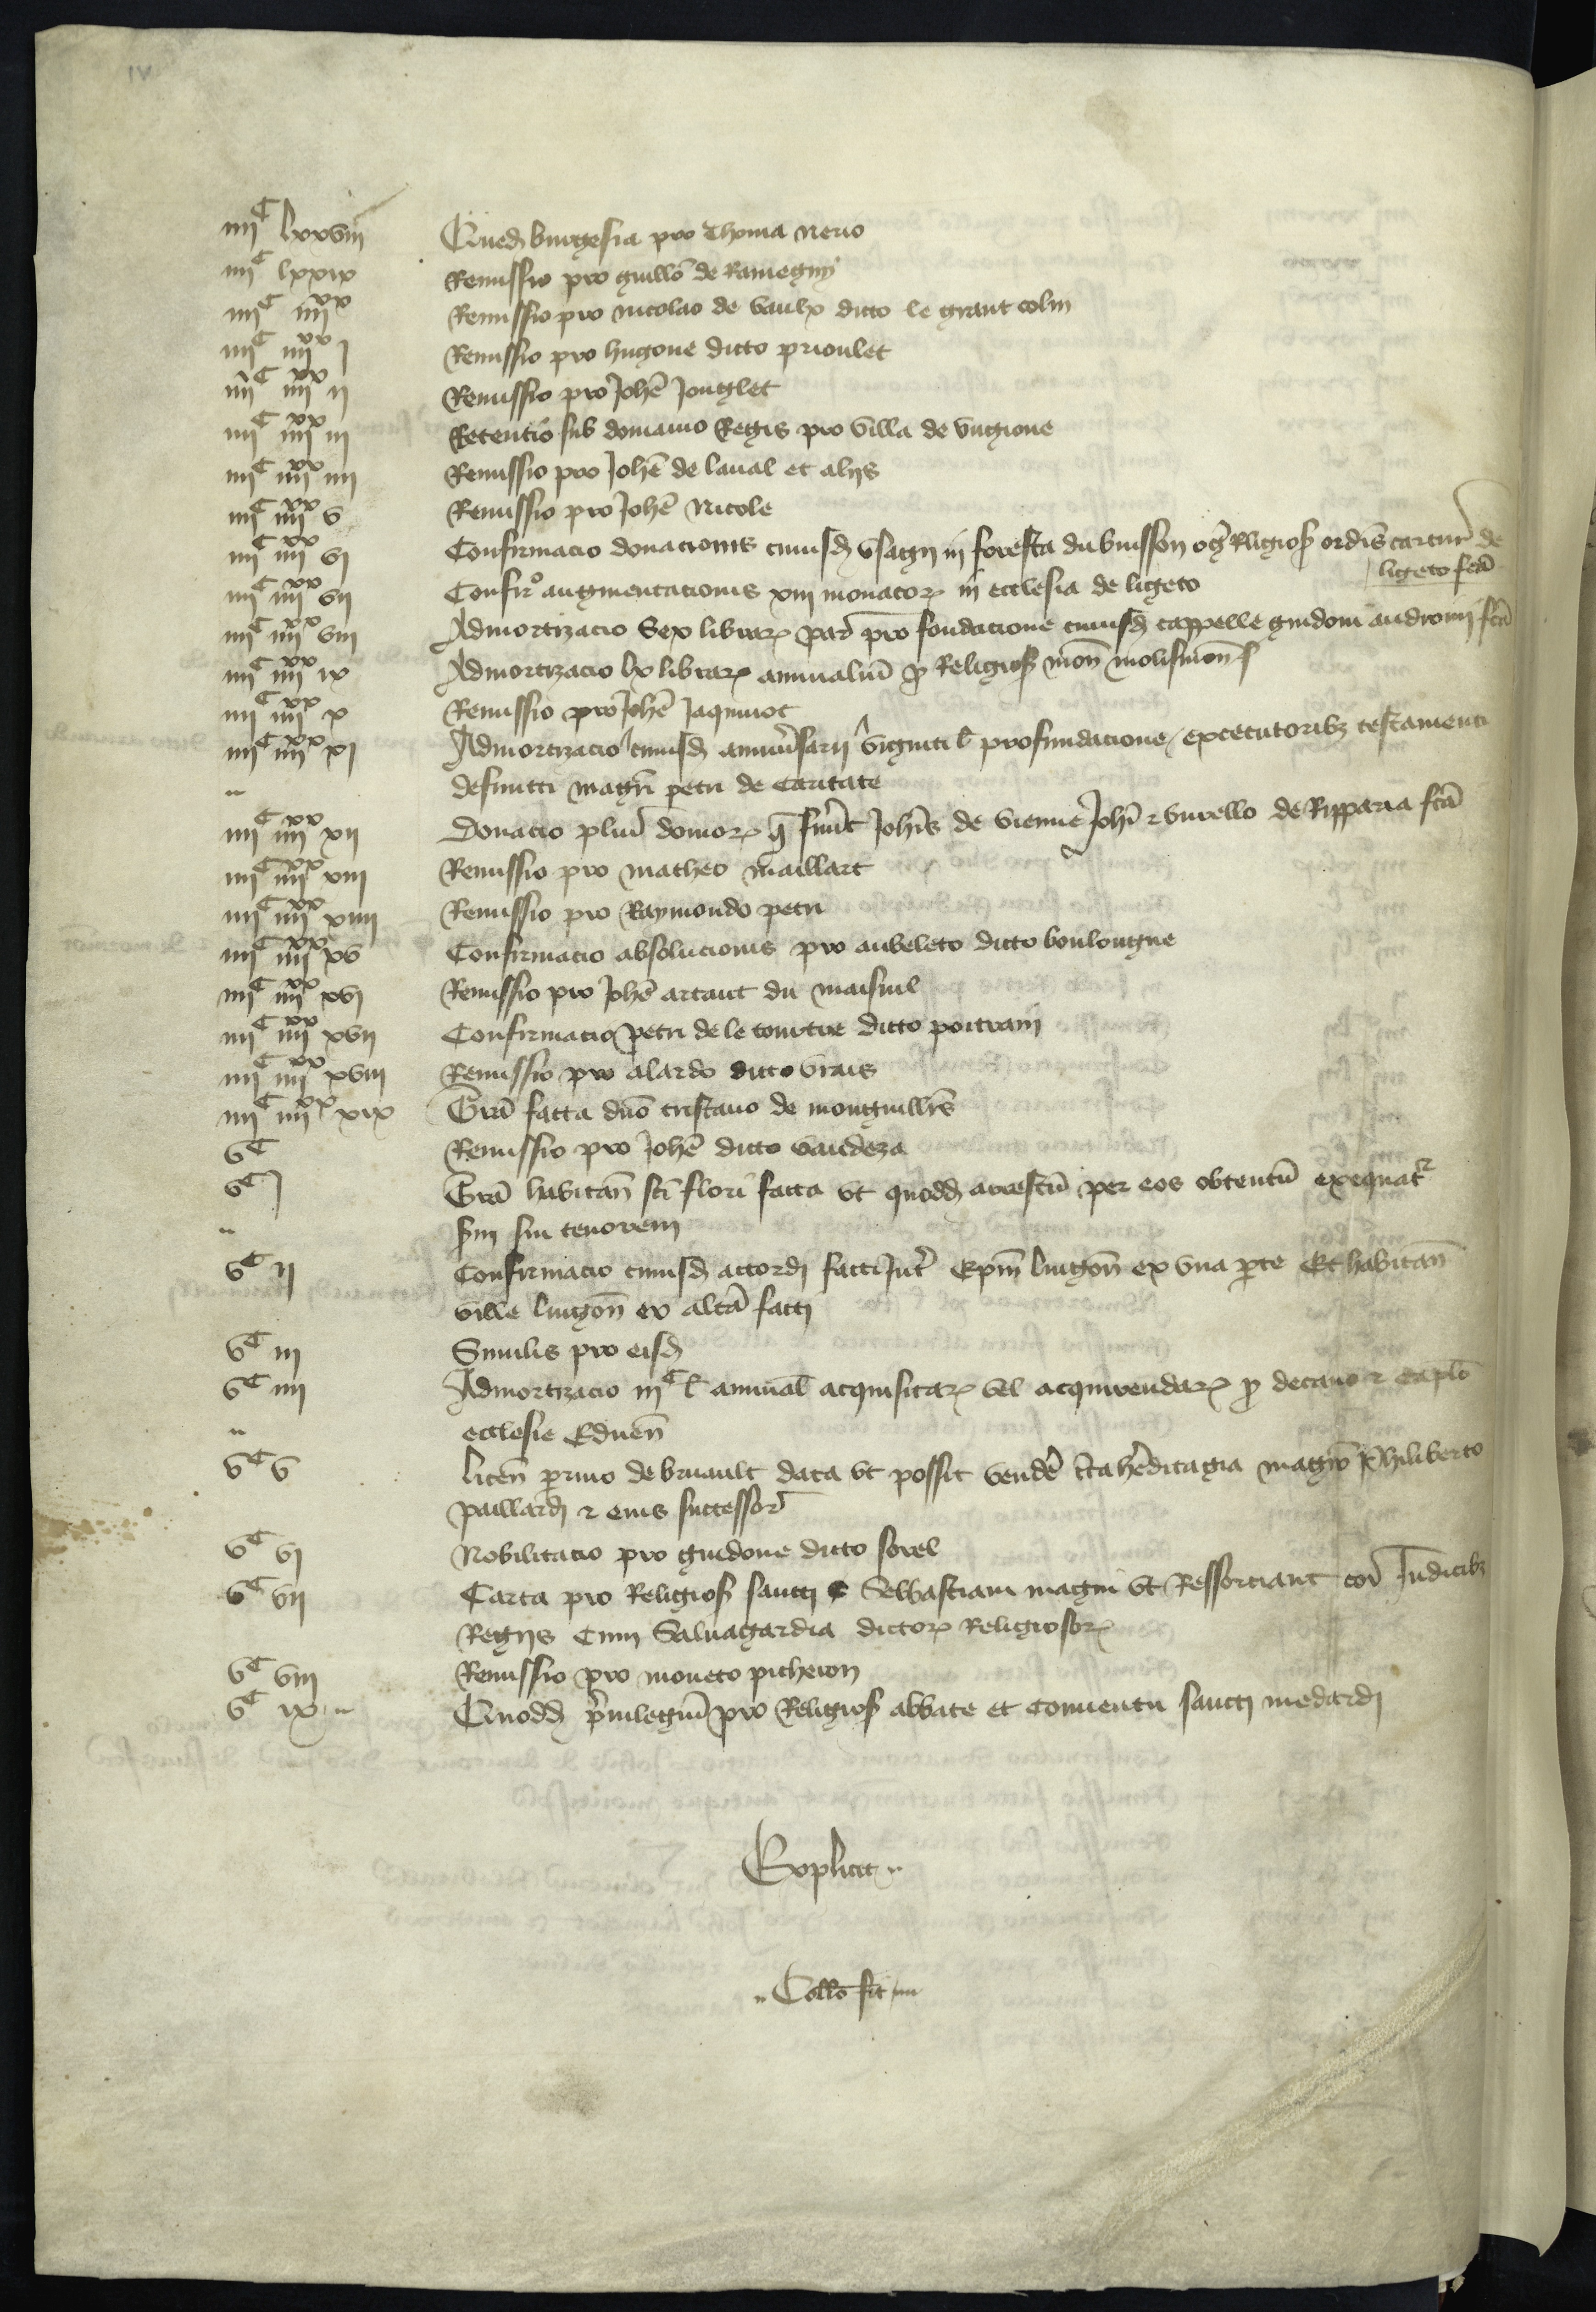 IV
iiiiC lxxviii Quedam burgesia pro Thoma nerio
iiiiC lxxix Remissio pro guillō de Ramegny
iiiiC iiiixx Remissio pro nicolao de vaulx dicto le grant colin
iiiiC iiiixx j Remissio pro hugone dicto prioulet
iiiiC iiiixx ij Remissio pro Johē Jouglet
iiiiC iiiixx iij Retentio sub domanio Regis pro villa de
iiiiC iiiixx iiij Remissio pro Johē de laual et alijs
iiiiC iiiixx v Remissio pro Johē Nicole
iiiiC iiiixx vj Confirmacio donacionis cuiusd usagij in foresta du buisson Religios ordis cartur de
ligeto fcā
iiiiC iiiixx vij Confirº augmentacionis xiij monacor in ecclesia de ligeto
iiiiC iiiixx viij Admortizacio Sex librar par pro fondacione cuiusd cappelle guidoni androin fcā
iiiiC iiiixx ix Admortizacio lx librar annualiū p Religios mon molismens
iiiiC iiiixx x Remissio pro Johē Jaquinot
iiiiC iiiixx xj Admortizacio cuiusd anniusarij viginti l pro fundacione executorib testamenti
.. defuncti magri petri de Caritate
iiiiC iiiixx xij Donacio pluri domor q fuert Johis de vienne Johi et burello de Ripparia fcā
iiiiC iiiixx xiij Remissio pro matheo maillart
iiiiC iiiixx xiiij Remissio pro Raymondo petri
iiiiC iiiixx xv Confirmacio absolucionis pro aubeleto dicto boulougne
iiiiC iiiixx xvj Remissio pro Johē artaut du maisnil
iiiiC iiiixx xvij Confirmacio petri de le courtre dicto poitrain
iiiiC iiiixx xviij Remissio pro alardo dicto vrais
iiiiC iiiixx xix Grā facta dno tristano de montguillrs
vC Remissio pro Johē dicto vaudeza
vC j Grā habitan sci flori facta ut quodd arrestū per eos obtentū exequatr
.. scdm sui tenorem
vC ij Confirmacio cuiusd accordi facti Intr Epm lingon ex una parte Et habitan
ville lingon ex altā facti
vC iij Similis pro eisd
vC iiij Admortizacio iijC l annual acquisitar vel acquirendar p decano et caplo
.. ecclesie Eduen
vC v licen de bruault data ut possit vendere hereditagia magro Philiberto
paillardi et eius successor
vC vj Nobilitacio pro guidone dicto sorel
vC vij Carta pro Religios sancti Sebastiani magni ut Ressortiant cor Iudicib
Regijs Cum Saluagardia dictor Religiosor
vC viij Remissio pro moneto picheron
vC ix .. Quodd priuilegiū pro Religios abbate et conuentu sancti medardi
Explicit ..
.. Collo fit ..